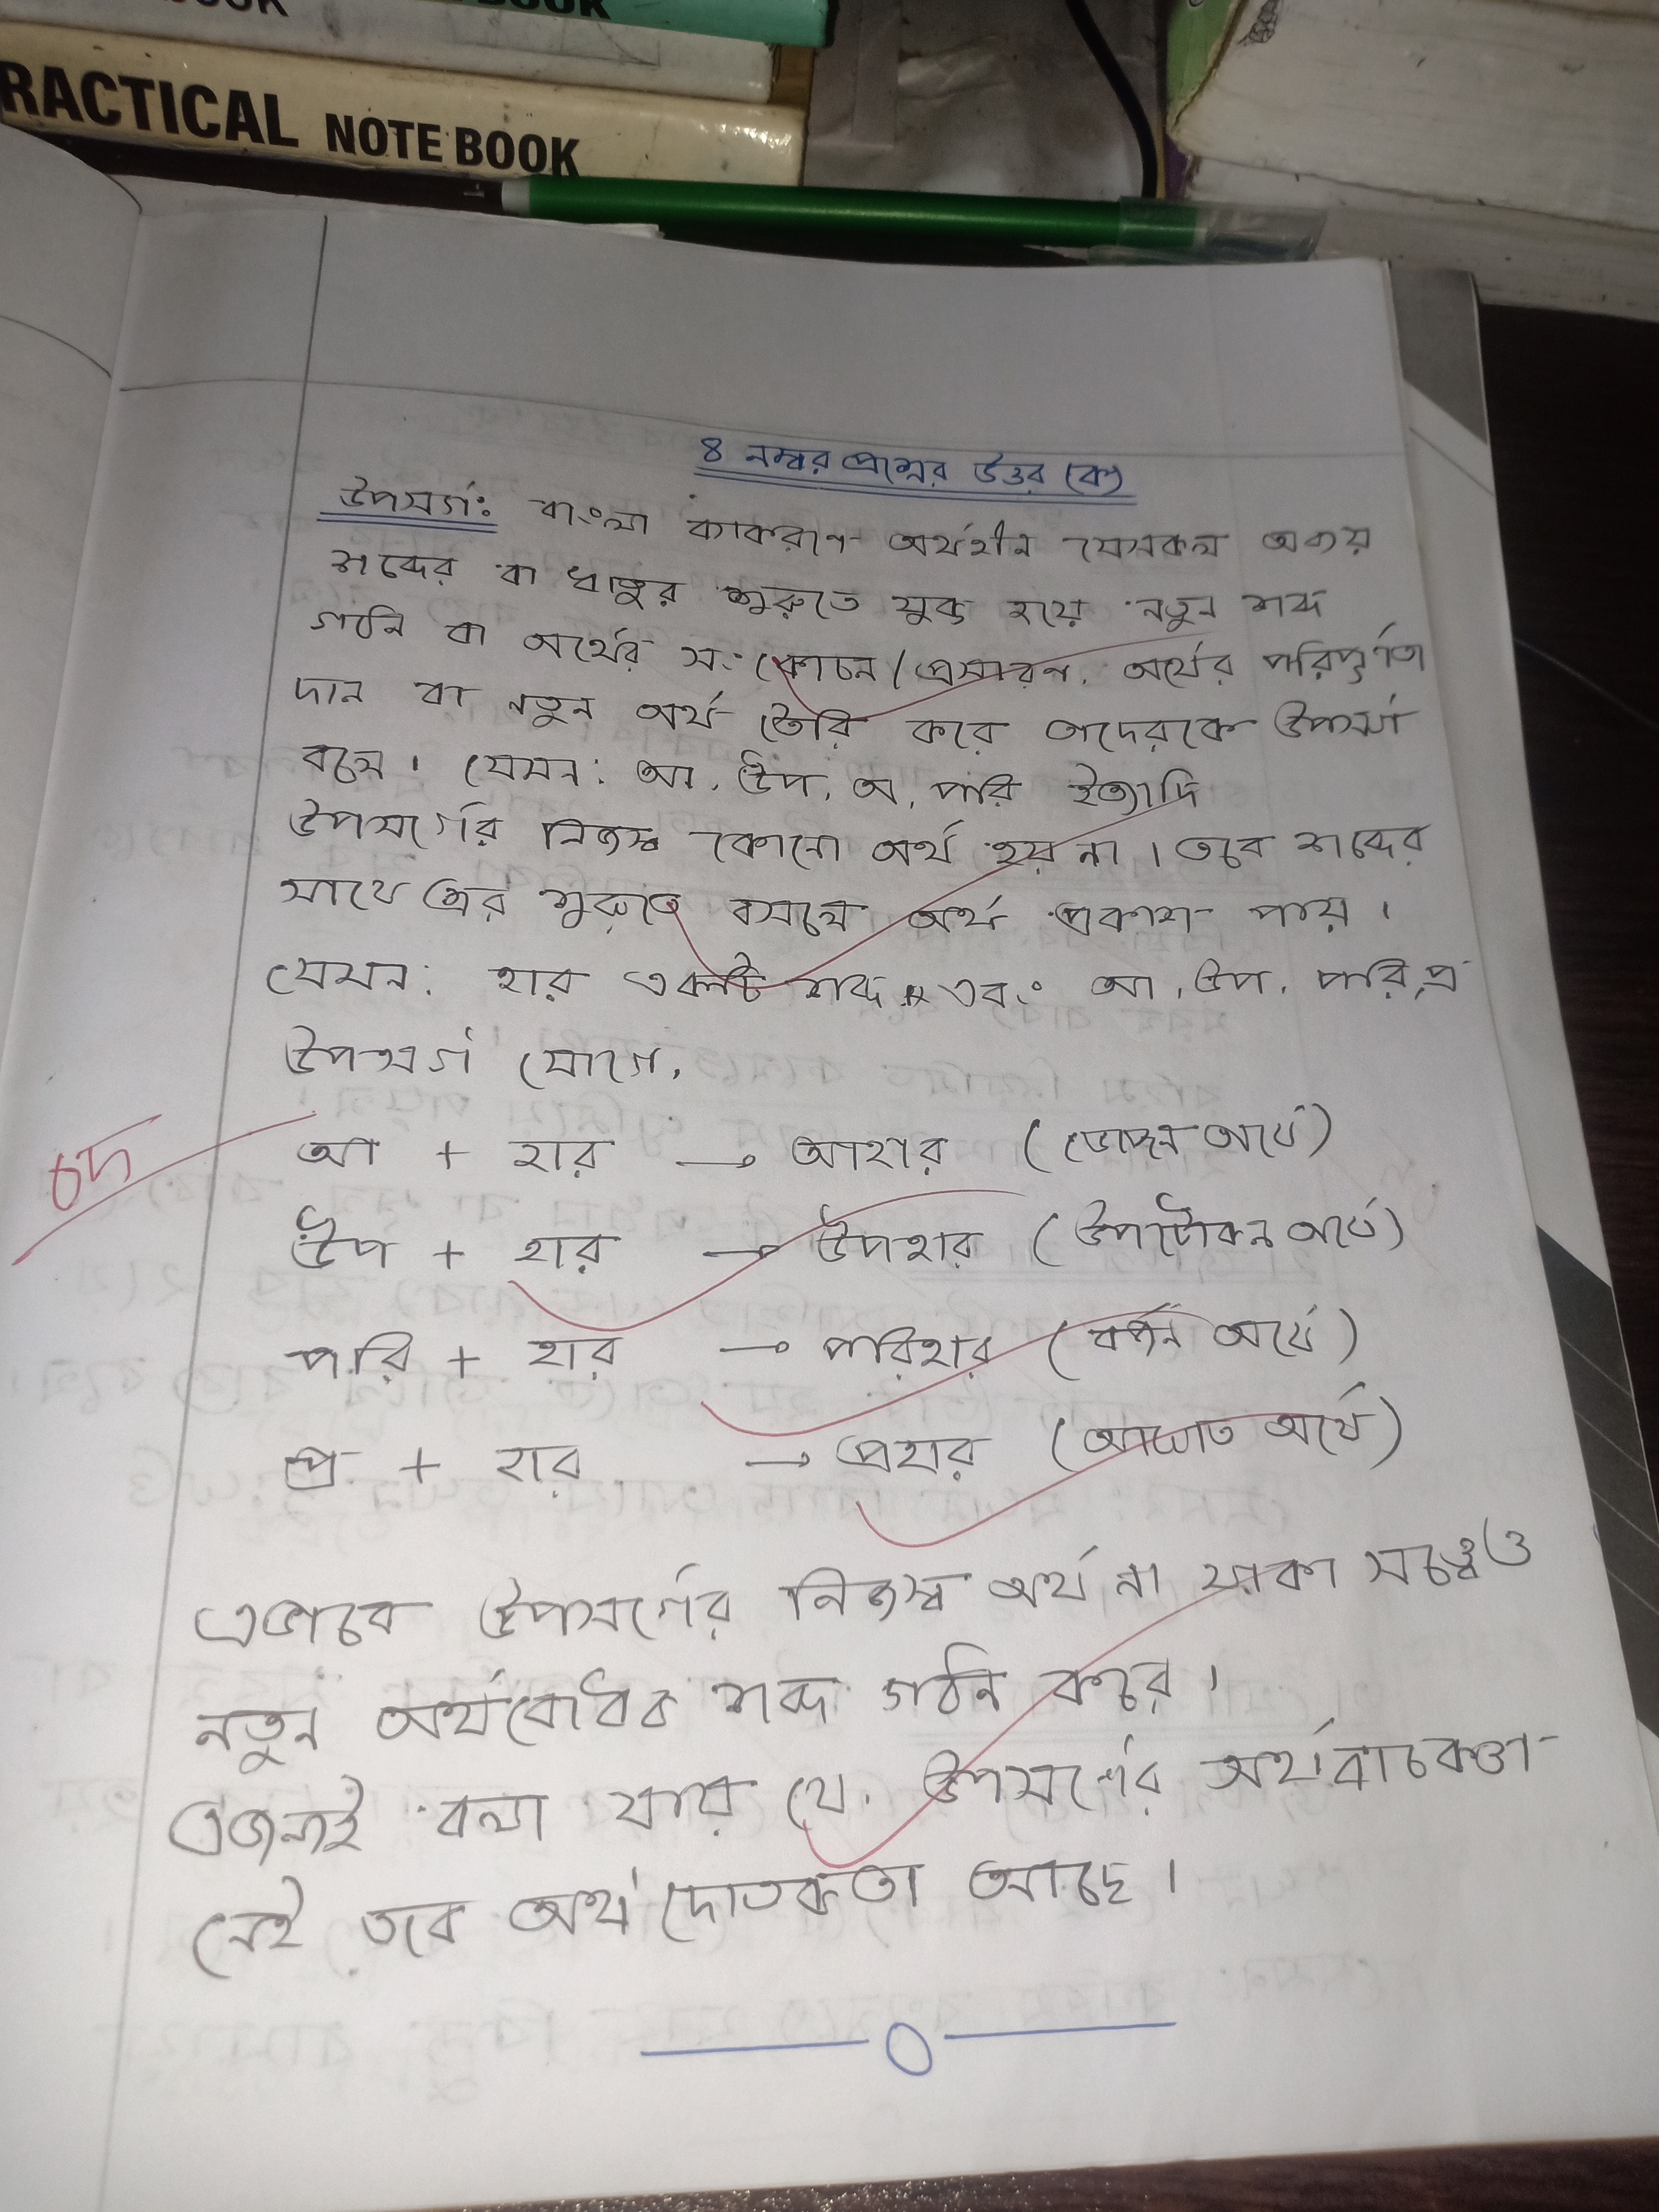 BOOK
BOOK
RACTICAL NOTE BOOK
৪ নম্বর প্রশ্নের উত্তর (ক)
উপসর্গঃ বাংলা ব্যাকরণে অর্থহীন যেসকল অব্যয়
শব্দের বা ধাতুর শুরুতে যুক্ত হয়ে নতুন শব্দ
গঠন বা অর্থের সংকোচন/প্রসারণ, অর্থের পরিপূর্ণতা
দান বা নতুন অর্থ তৈরি করে তাদেরকে উপসর্গ
বলে। যেমন: আ, উপ, অ, পরি ইত্যাদি
উপসর্গের নিজস্ব কোনো অর্থ হয় না। তবে শব্দের
সাথে এর শুরুতে বসলে অর্থ প্রকাশ পায়।
যেমন: হার একটি শব্দ এবং আ, উপ, পরি, প্র
উপসর্গ যোগে,
আ + হার → আহার (ভোজন অর্থে)
উপ + হার → উপহার (উপঢৌকন অর্থে)
পরি + হার → পরিহার (বর্জন অর্থে)
প্র + হার → প্রহার (আঘাত অর্থে)
এভাবে উপসর্গের নিজস্ব অর্থ না থাকা সত্ত্বেও
নতুন অর্থবোধক শব্দ গঠন করে।
এজন্যই বলা যায় যে, উপসর্গের অর্থবাচকতা
নেই তবে অর্থদ্যোতকতা আছে।